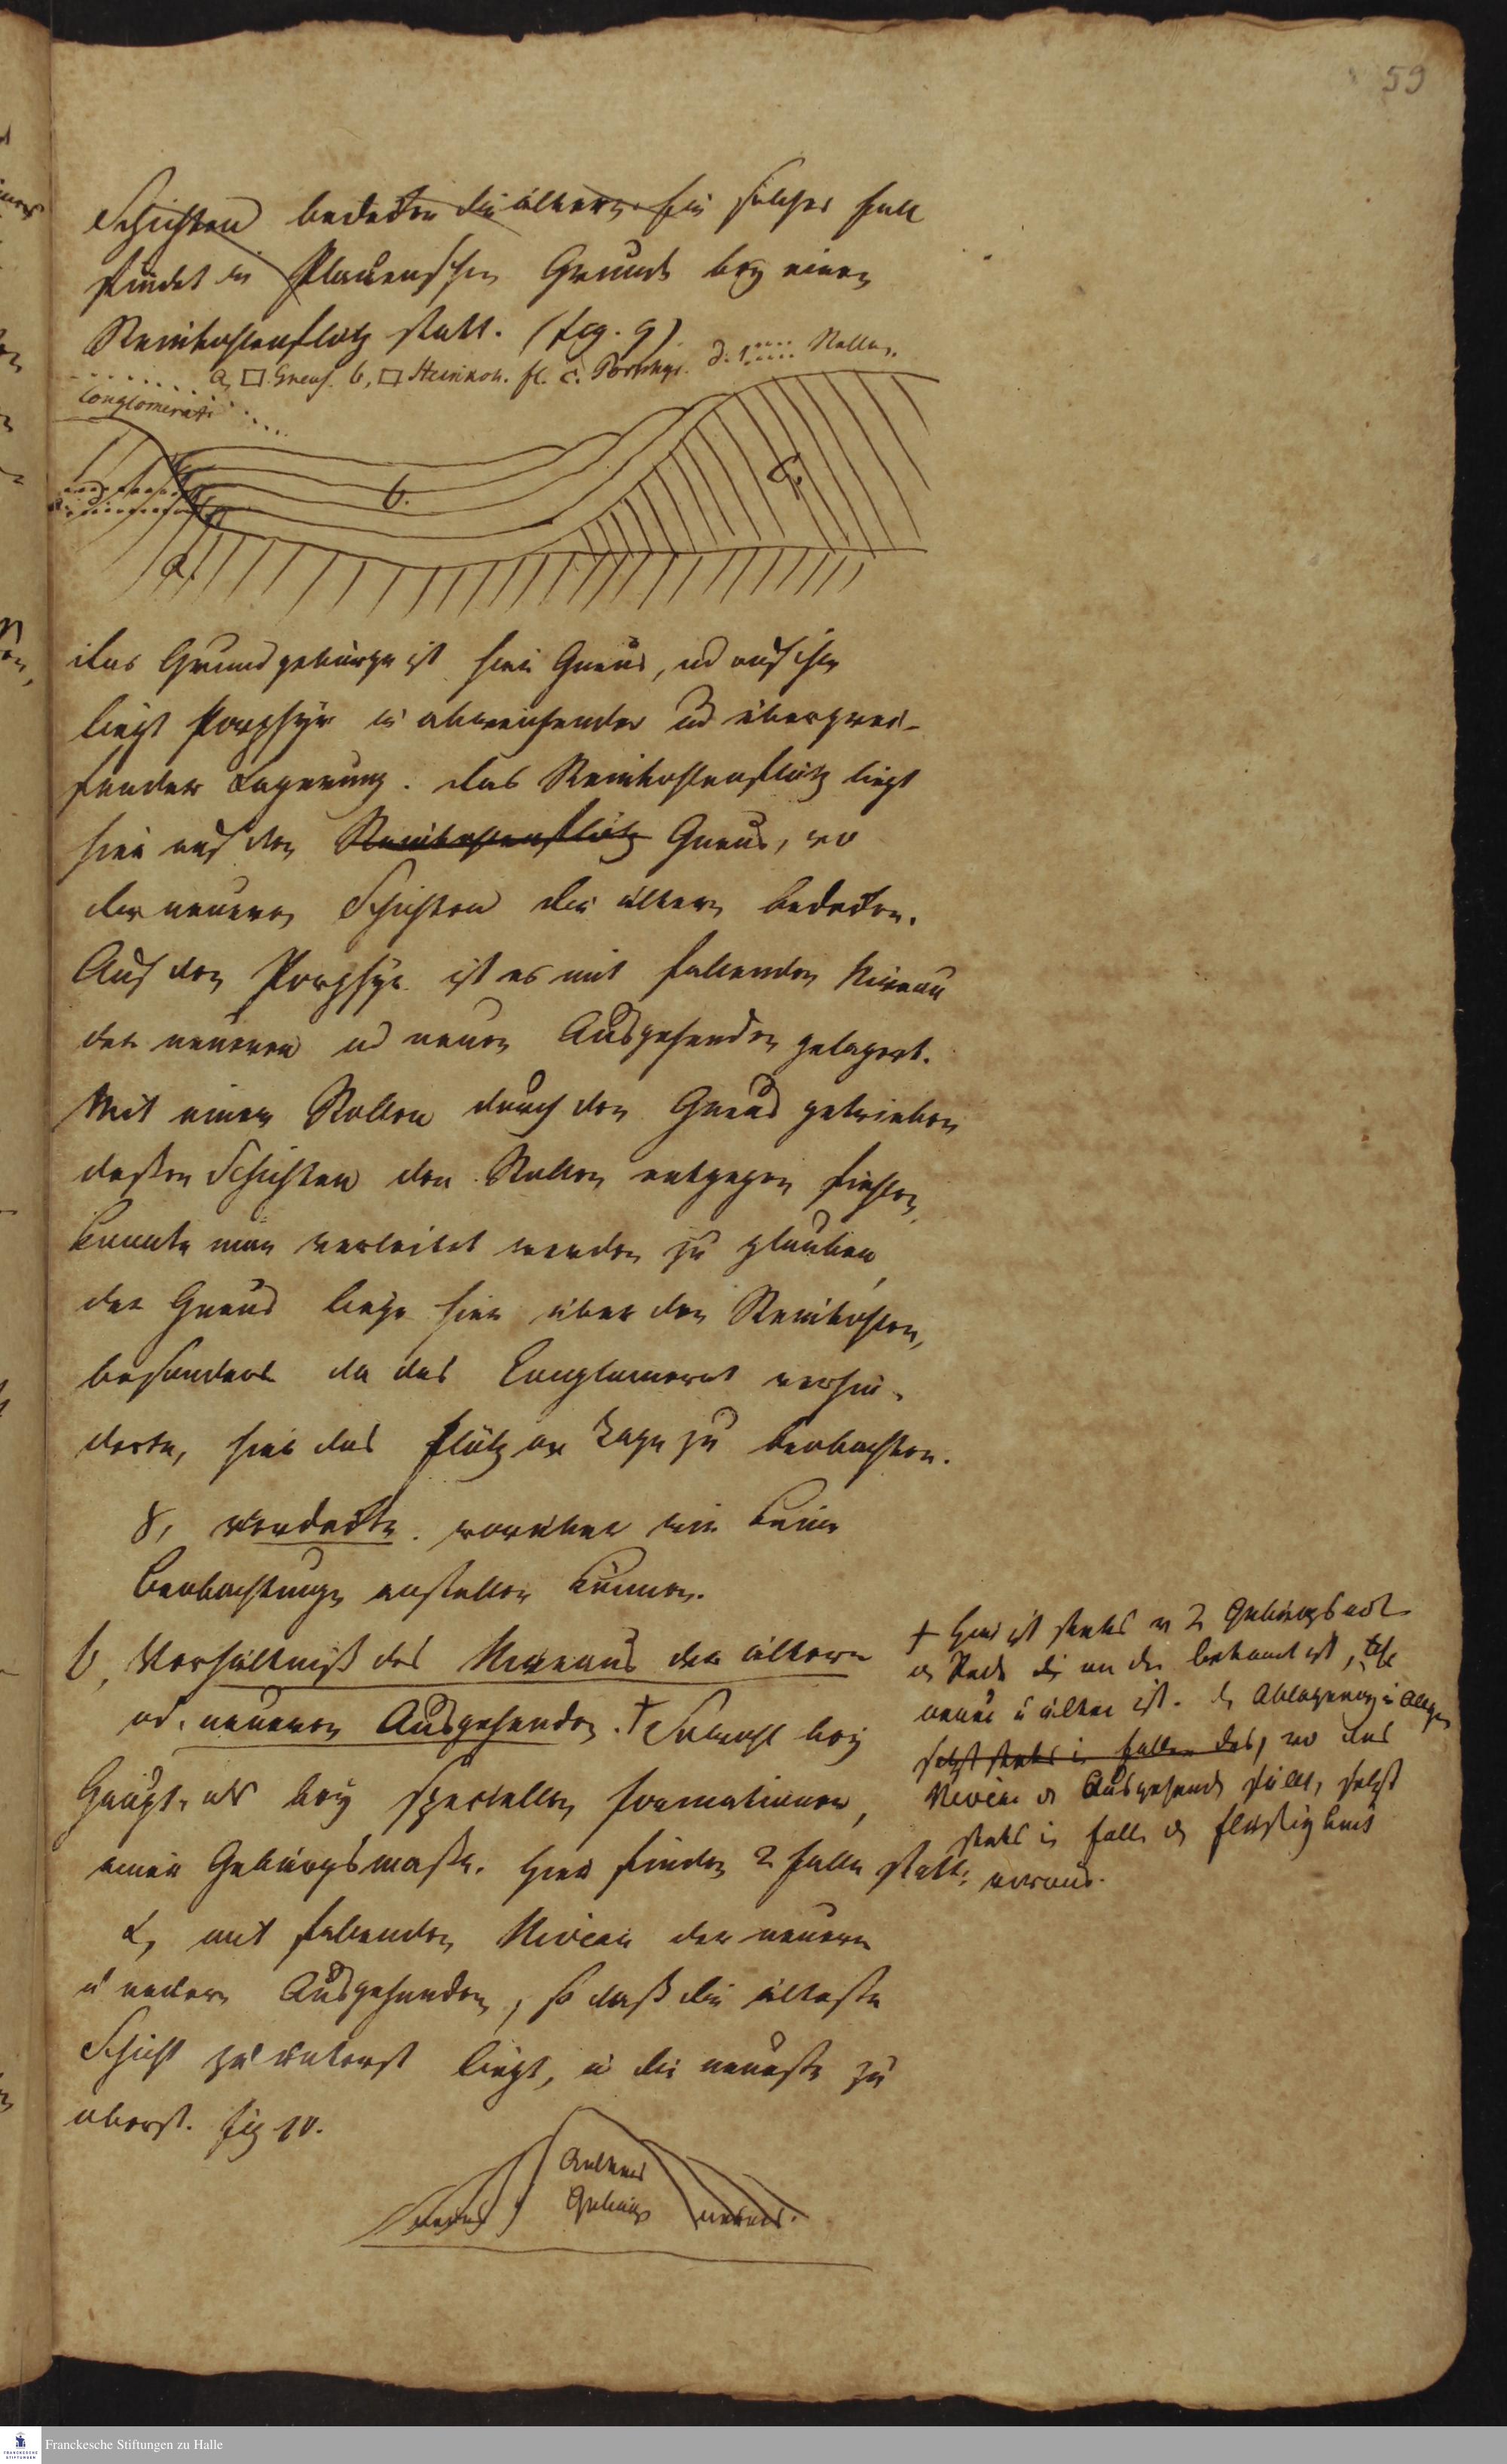 59
Schichten bedecken die älteren. Ein solcher Fall
findet im Plauenschen Grunde bey einem
Steinkohlenflötz statt. (fig. 9)
a, Gneus. b, Steinkoh. fl. c. Porphyr. d. Stollen.
Conglomerat
b.
c.
d
a.
das Grundgebürge ist hier Gneus, und auf ihm
liegt Porphyr in abweichender und übergrei-
fender Lagerung. das Steinkohlenflötz liegt
hier auf dem Steinkohlenflötz Gneus, wo
die neuern Schichten die ältern bedecken.
Auf dem Porphyr ist es mit fallendem Niveau
der neueren und neuen Ausgehenden gelagert.
Mit einem Stollen durch den Gneus getrieben
deßen Schichten dem Stollen entgegen fielen,
konnte man verleitet werden zu glauben,
der Gneus liege hier über den Steinkohlen,
besonders da das Conglomerat verhin-
derte, hier das Flötz am Tage zu beobachten.
γ, verdeckte. worüber wir keine
Beobachtungen anstellen können.
b, Verhältniß des Niveaus der ältern
und neueren Ausgehenden. † Sowohl bey
Haupt- als bey speciellen Formationen,
einer Gebürgsmaße. Hier finden 2 Fälle statt:
α, mit fallendem Niveau der neuern
u neuern Ausgehenden, so daß die älteste
Schicht zu unterst liegt, u die neueste zu
oberst. fig 10.
Aelteres
Gebürg
neueres
neueres.
† Hier ist stets v 2 Gebürgsart
d Rede die an der bekannt ist, welche
neuer u älter ist. d Ablagerung in Allgem
setzt stets in Fallen das, wo das
Niveau d Ausgehends fällt, setzt
stets in Falle d Flüßigkeit
voraus.
Franckesche Stiftungen zu Halle